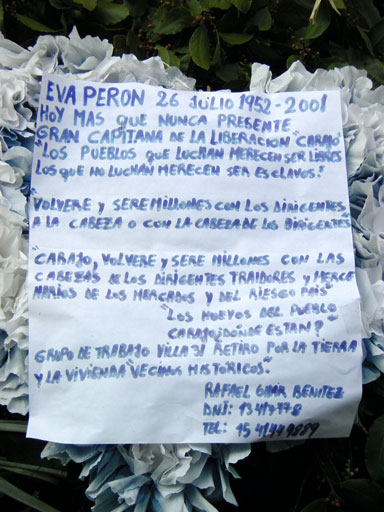 EVA PERON 26 JULIO 1952-2001
HOY MAS QUE NUNCA PRESENTE
GRAN CAPITANA DE LA LIBERACION "CARAJO"
"LOS PUEBLOS QUE LUCHAN MERECEN SER LIBRES
LOS QUE NO LUCHAN MERECEN SER ESCLAVOS."
"VOLVERE Y SERE MILLONES CON LOS DIRIGENTES
A LA CABEZA O CON LA CABEZA DE LOS DIRIGENTES"
"CARAJO, VOLVERE Y SERE MILLONES CON LAS
CABEZAS DE LOS DIRIGENTES TRAIDORES y MERCE
NARIOS DE LOS MERCADOS y DEL RIESGO PAIS"
"LOS HUEVOS DEL PUEBLO
CARAJO ¿DONDE ESTAN?
GRUPO DE TRABAJO VILLA 31 RETIRO POR LA TIERRA
y LA VIVIENDA "VECINOS HISTORICOS."
RAFAEL BENITEZ
DNI:
TEL: 15